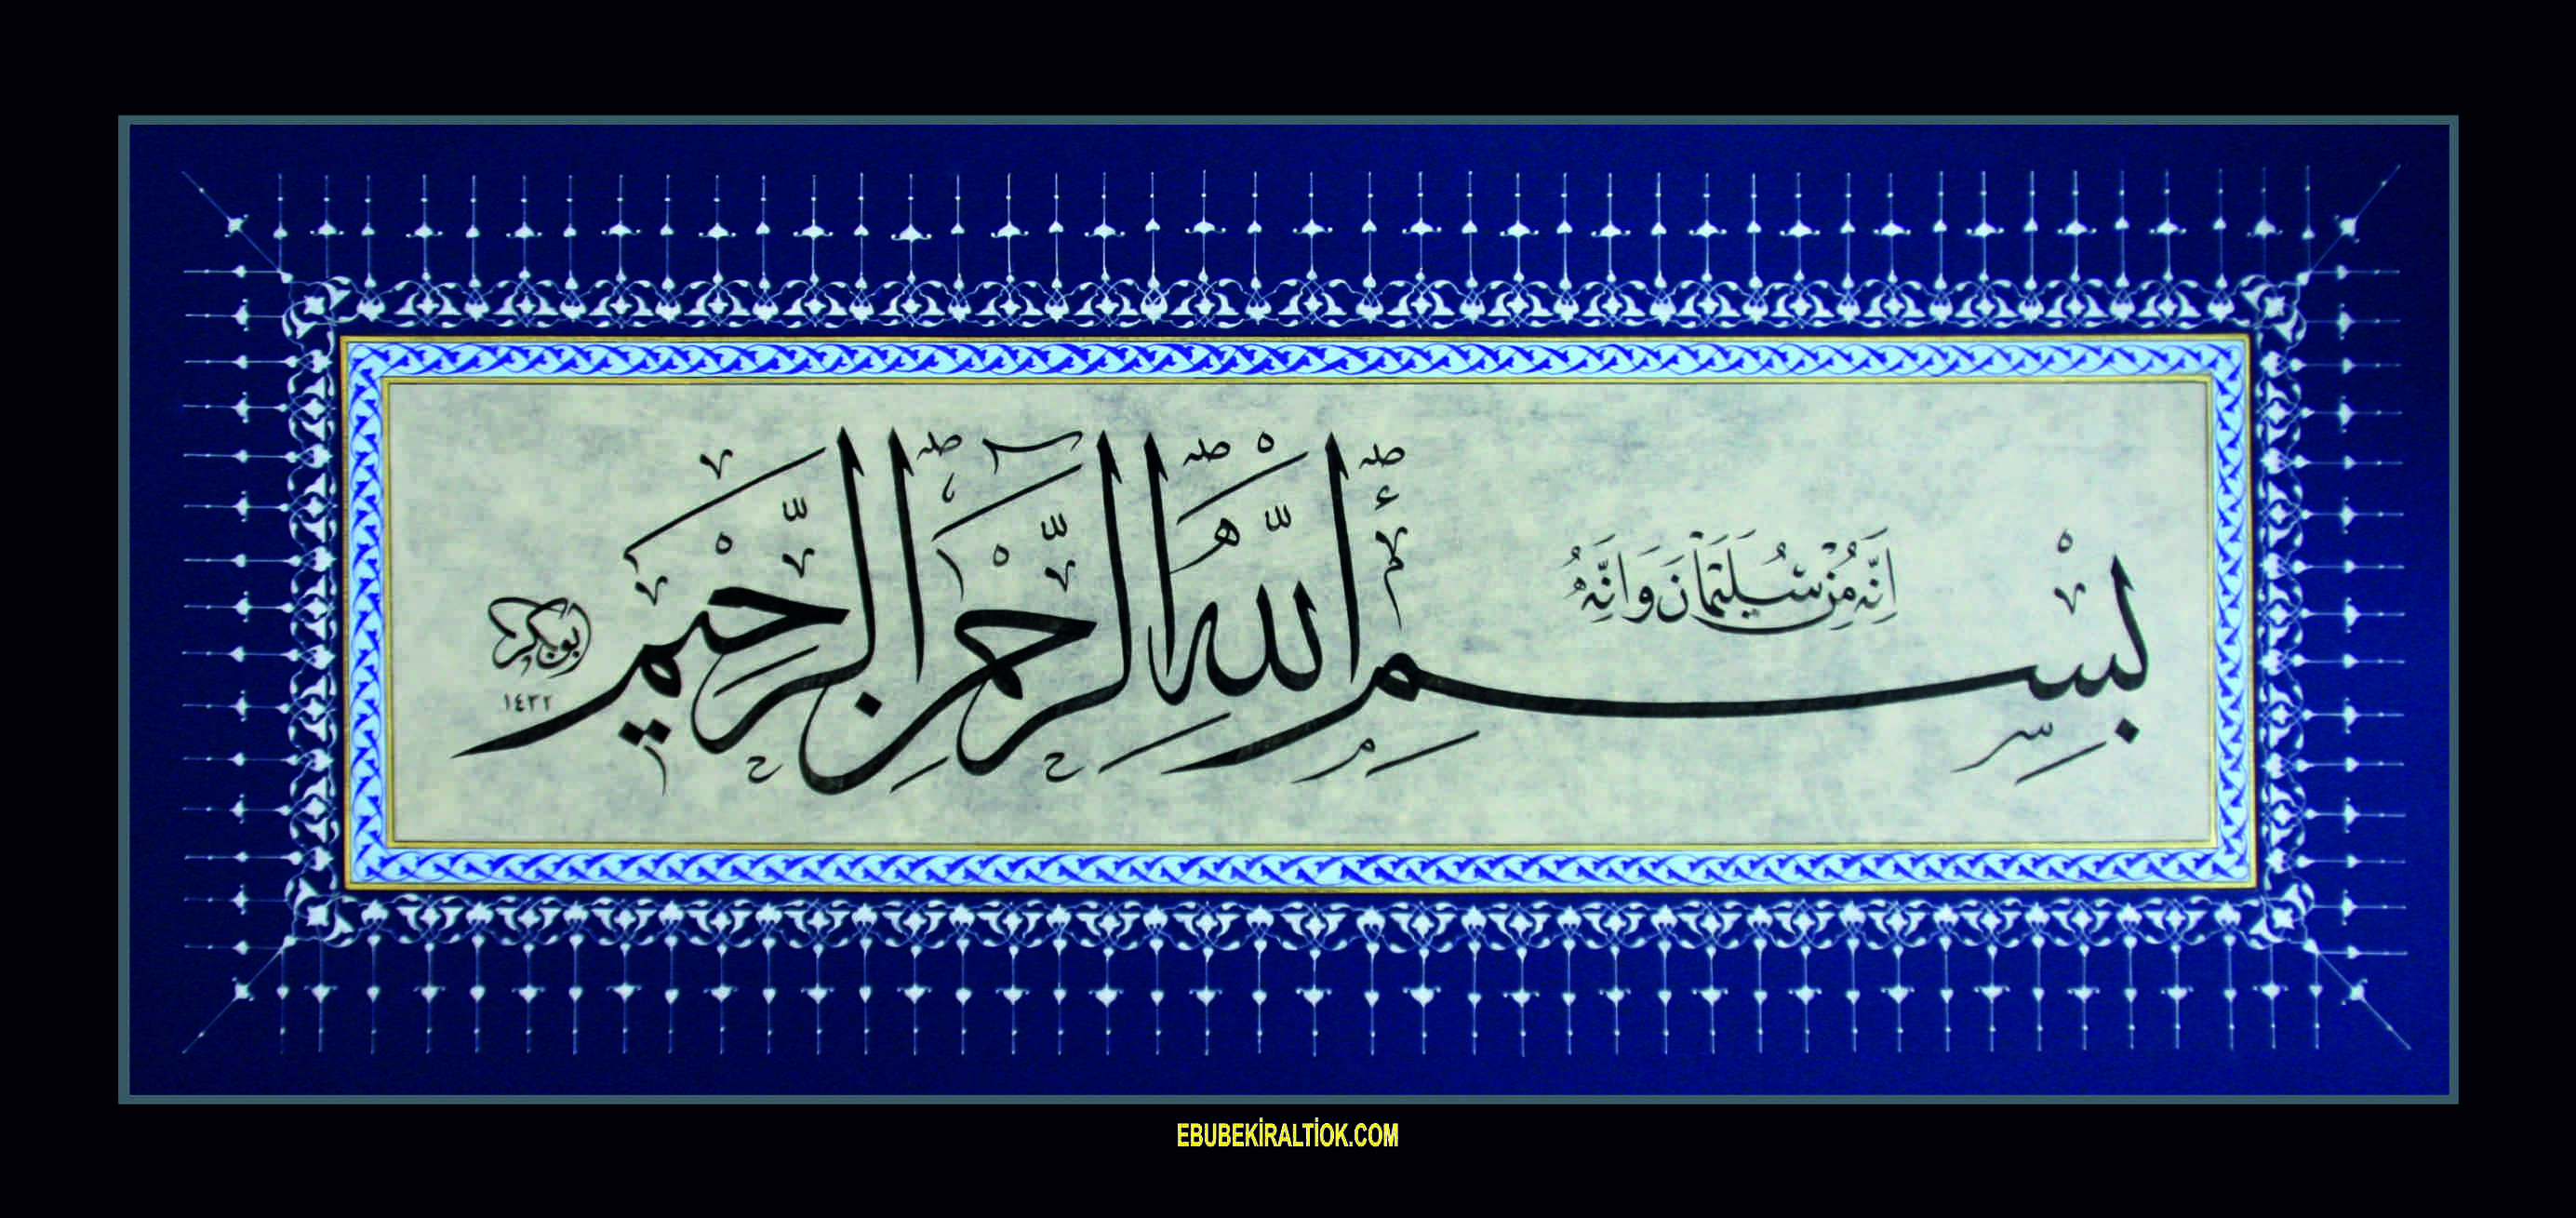 اِنَّهُ مِنْ سُلَيْمَانَ وَاِنَّهُ
بِسْمِ اللّٰهِ الرَّحْمٰنِ الرَّحِيمِ
بوبكر
١٤٣٢
EBUBEKİRALTİOK.COM